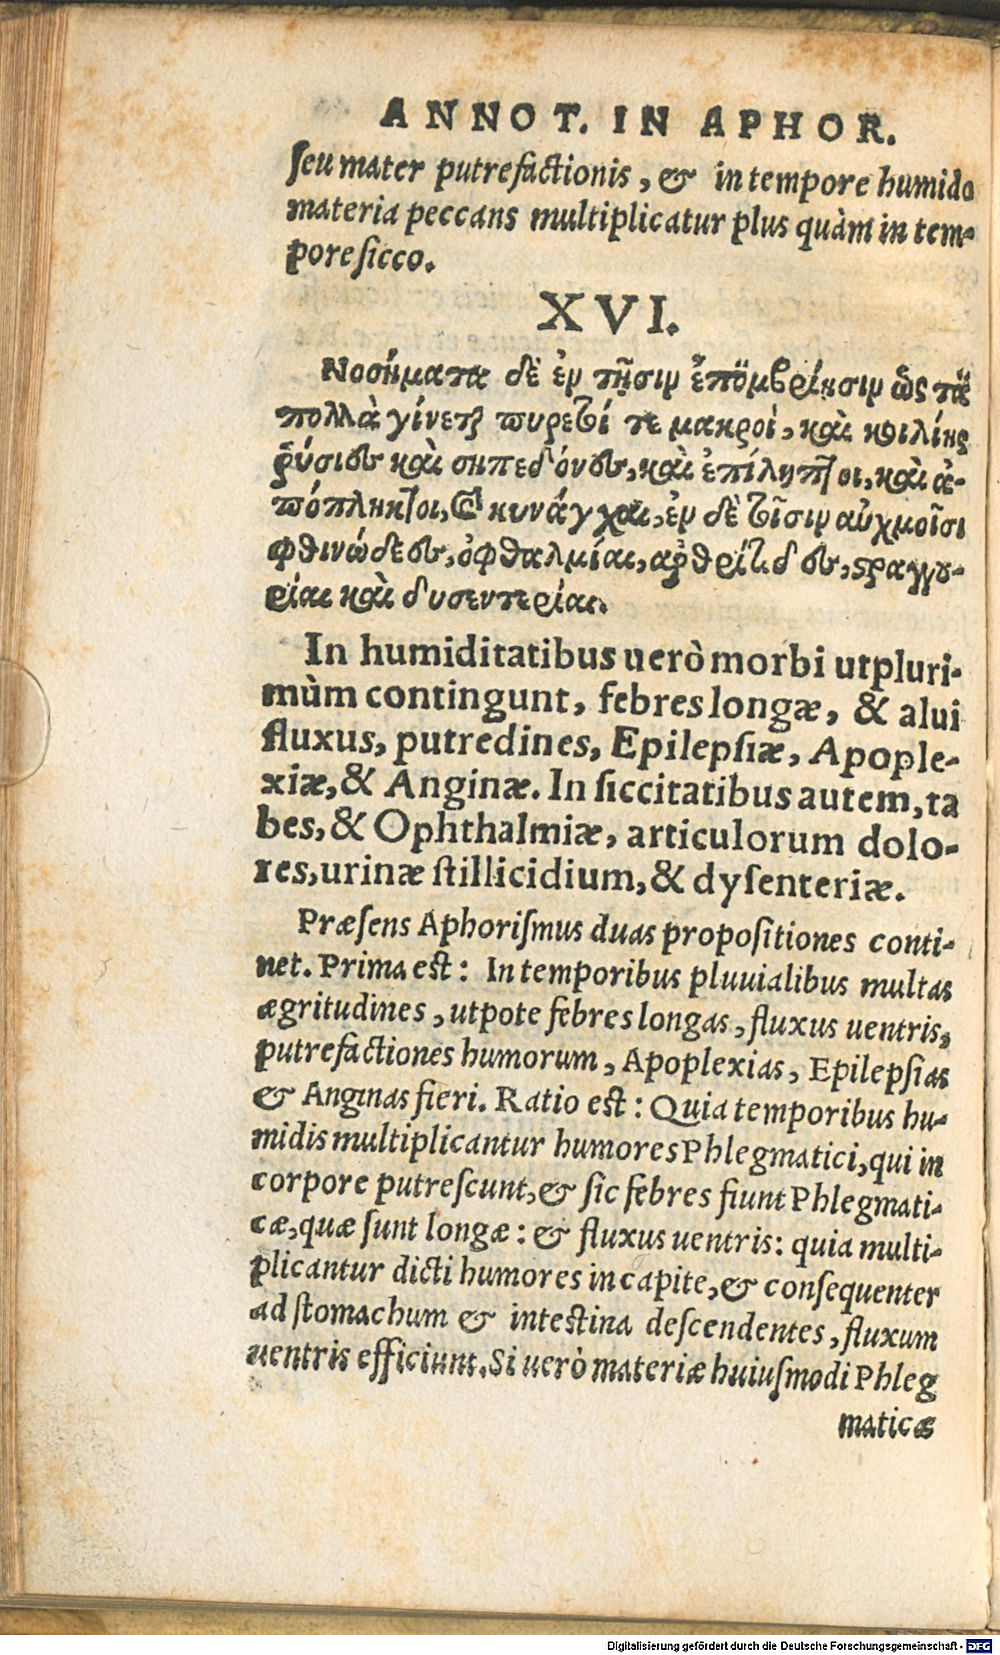 ANNOT. IN APHOR.
ſeu mater putrefactionis, & in tempore humido
materia peccans multiplicatur plus quàm in tem-
pore ſicco.
XVI.
Νοσήματα δὲ ἐν τῇσιν ἐπομβρίῃσιν ὡς τὰ
πολλὰ γίνεται πυρετοί τε μακροὶ, καὶ κοιλίης
ῥύσιες καὶ σηπεδόνες, καὶ ἐπίληπτοι, καὶ ἀ-
πόπληκτοι, καὶ κυνάγχαι, ἐν δὲ τοῖσιν αὐχμοῖσι
φθινώδεες, ὀφθαλμίαι, ἀρθρίτιδες, στραγγου-
ρίαι καὶ δυσεντερίαι.
In humiditatibus uerò morbi utpluri-
mùm contingunt, febres longæ, & alui
fluxus, putredines, Epilepſiæ, Apople-
xiæ, & Anginæ. In ſiccitatibus autem, ta
bes, & Ophthalmiæ, articulorum dolo-
res, urinæ ſtillicidium, & dyſenteriæ.
Præſens Aphoriſmus duas propoſitiones conti-
net. Prima eſt: In temporibus pluuialibus multas
ægritudines, utpote febres longas, fluxus uentris,
putrefactiones humorum, Apoplexias, Epilepſias
& Anginas fieri. Ratio eſt: Quia temporibus hu-
midis multiplicantur humores Phlegmatici, qui in
corpore putreſcunt, & ſic febres fiunt Phlegmati-
cæ, quæ ſunt longæ: & fluxus uentris: quia multi-
plicantur dicti humores in capite, & conſequenter
ad ſtomachum & inteſtina deſcendentes, fluxum
uentris efficiunt. Si uerò materiæ huiuſmodi Phleg
maticæ
Digitalisierung gefördert durch die Deutsche Forschungsgemeinschaft - DFG